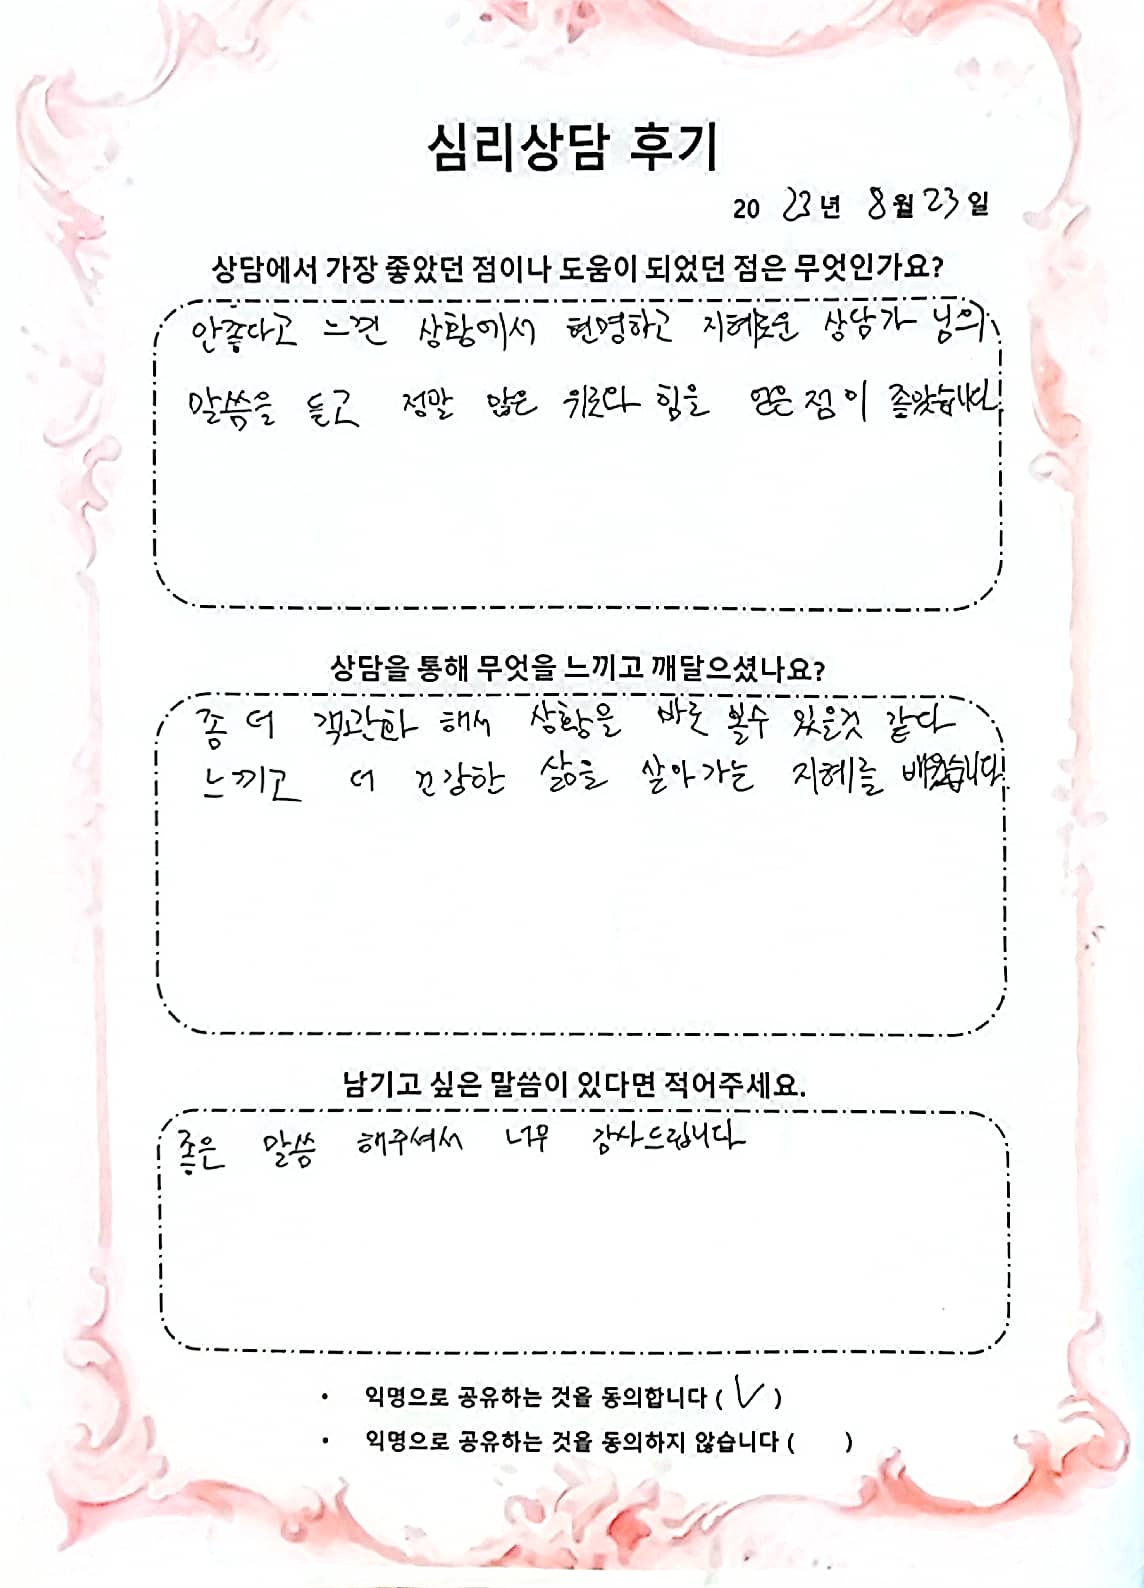 심리상담 후기
20 23년 8월 23일
상담에서 가장 좋았던 점이나 도움이 되었던 점은 무엇인가요?
안좋다고 느낀 상황에서 현명하고 지혜로운 상담가 님의
말씀을 듣고 정말 많은 위로와 힘을 얻은 점이 좋았습니다.
상담을 통해 무엇을 느끼고 깨달으셨나요?
좀 더 객관화 해서 상황을 바로 볼수 있을것 같다
느끼고 더 건강한 삶을 살아가는 지혜를 배웠습니다.
남기고 싶은 말씀이 있다면 적어주세요.
좋은 말씀 해주셔서 너무 감사드립니다
• 익명으로 공유하는 것을 동의합니다 ( V )
• 익명으로 공유하는 것을 동의하지 않습니다 ( )